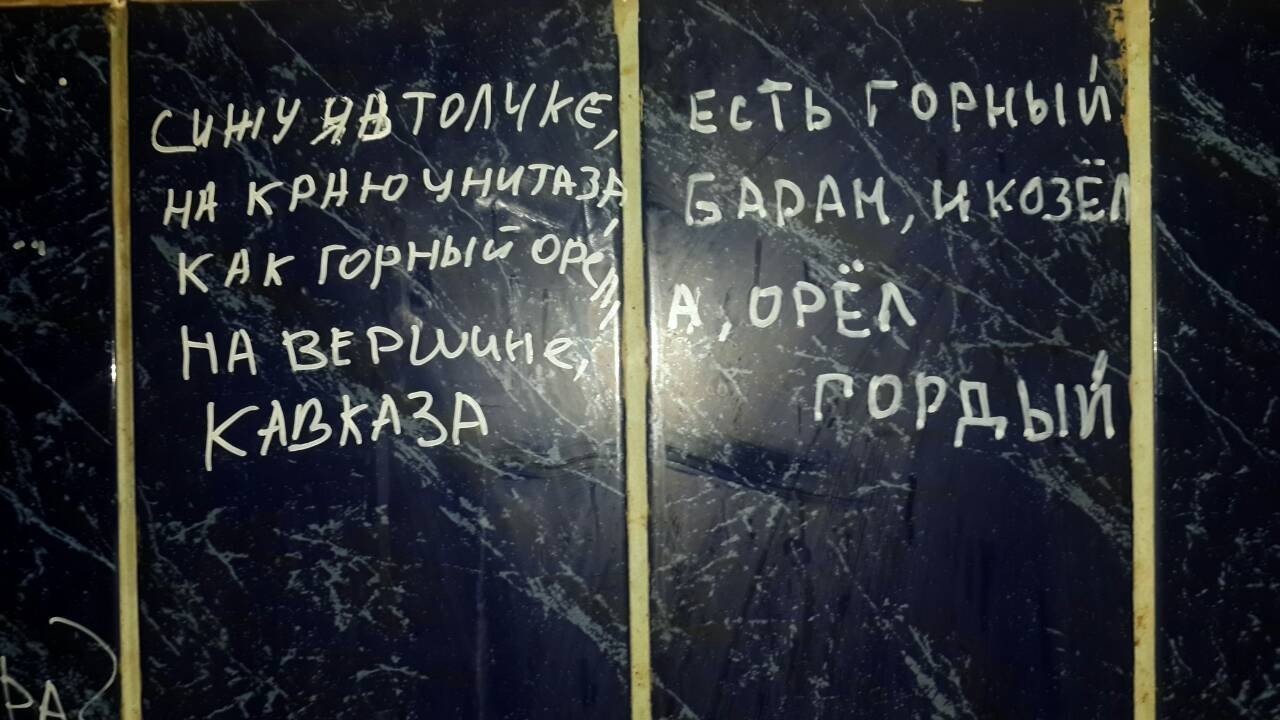 СИЖУ НА ТОЛЧКЕ,
НА КРАЮ УНИТАЗА,
КАК ГОРНЫЙ ОРЁЛ,
НА ВЕРШИНЕ,
КАВКАЗА
ЕСТЬ ГОРНЫЙ
БАРАН, И КОЗЁЛ
А, ОРЁЛ
ГОРДЫЙ
РА